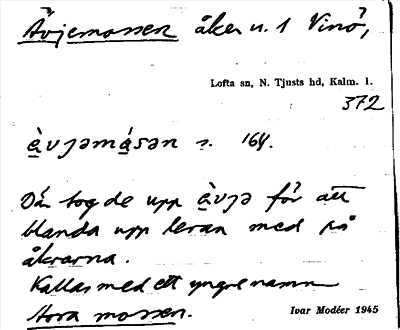 Ävjemossen åker u. 1 Vinö,
Lofta sn, N. Tjusts hd, Kalm. l.
372
ä̀vjəmå̀sən s. 164.
Där tog de upp ä̀vjə för att
blanda upp leran med på
åkrarna.
Kallas med ett yngre namn
Stora mossen.
Ivar Modéer 1945